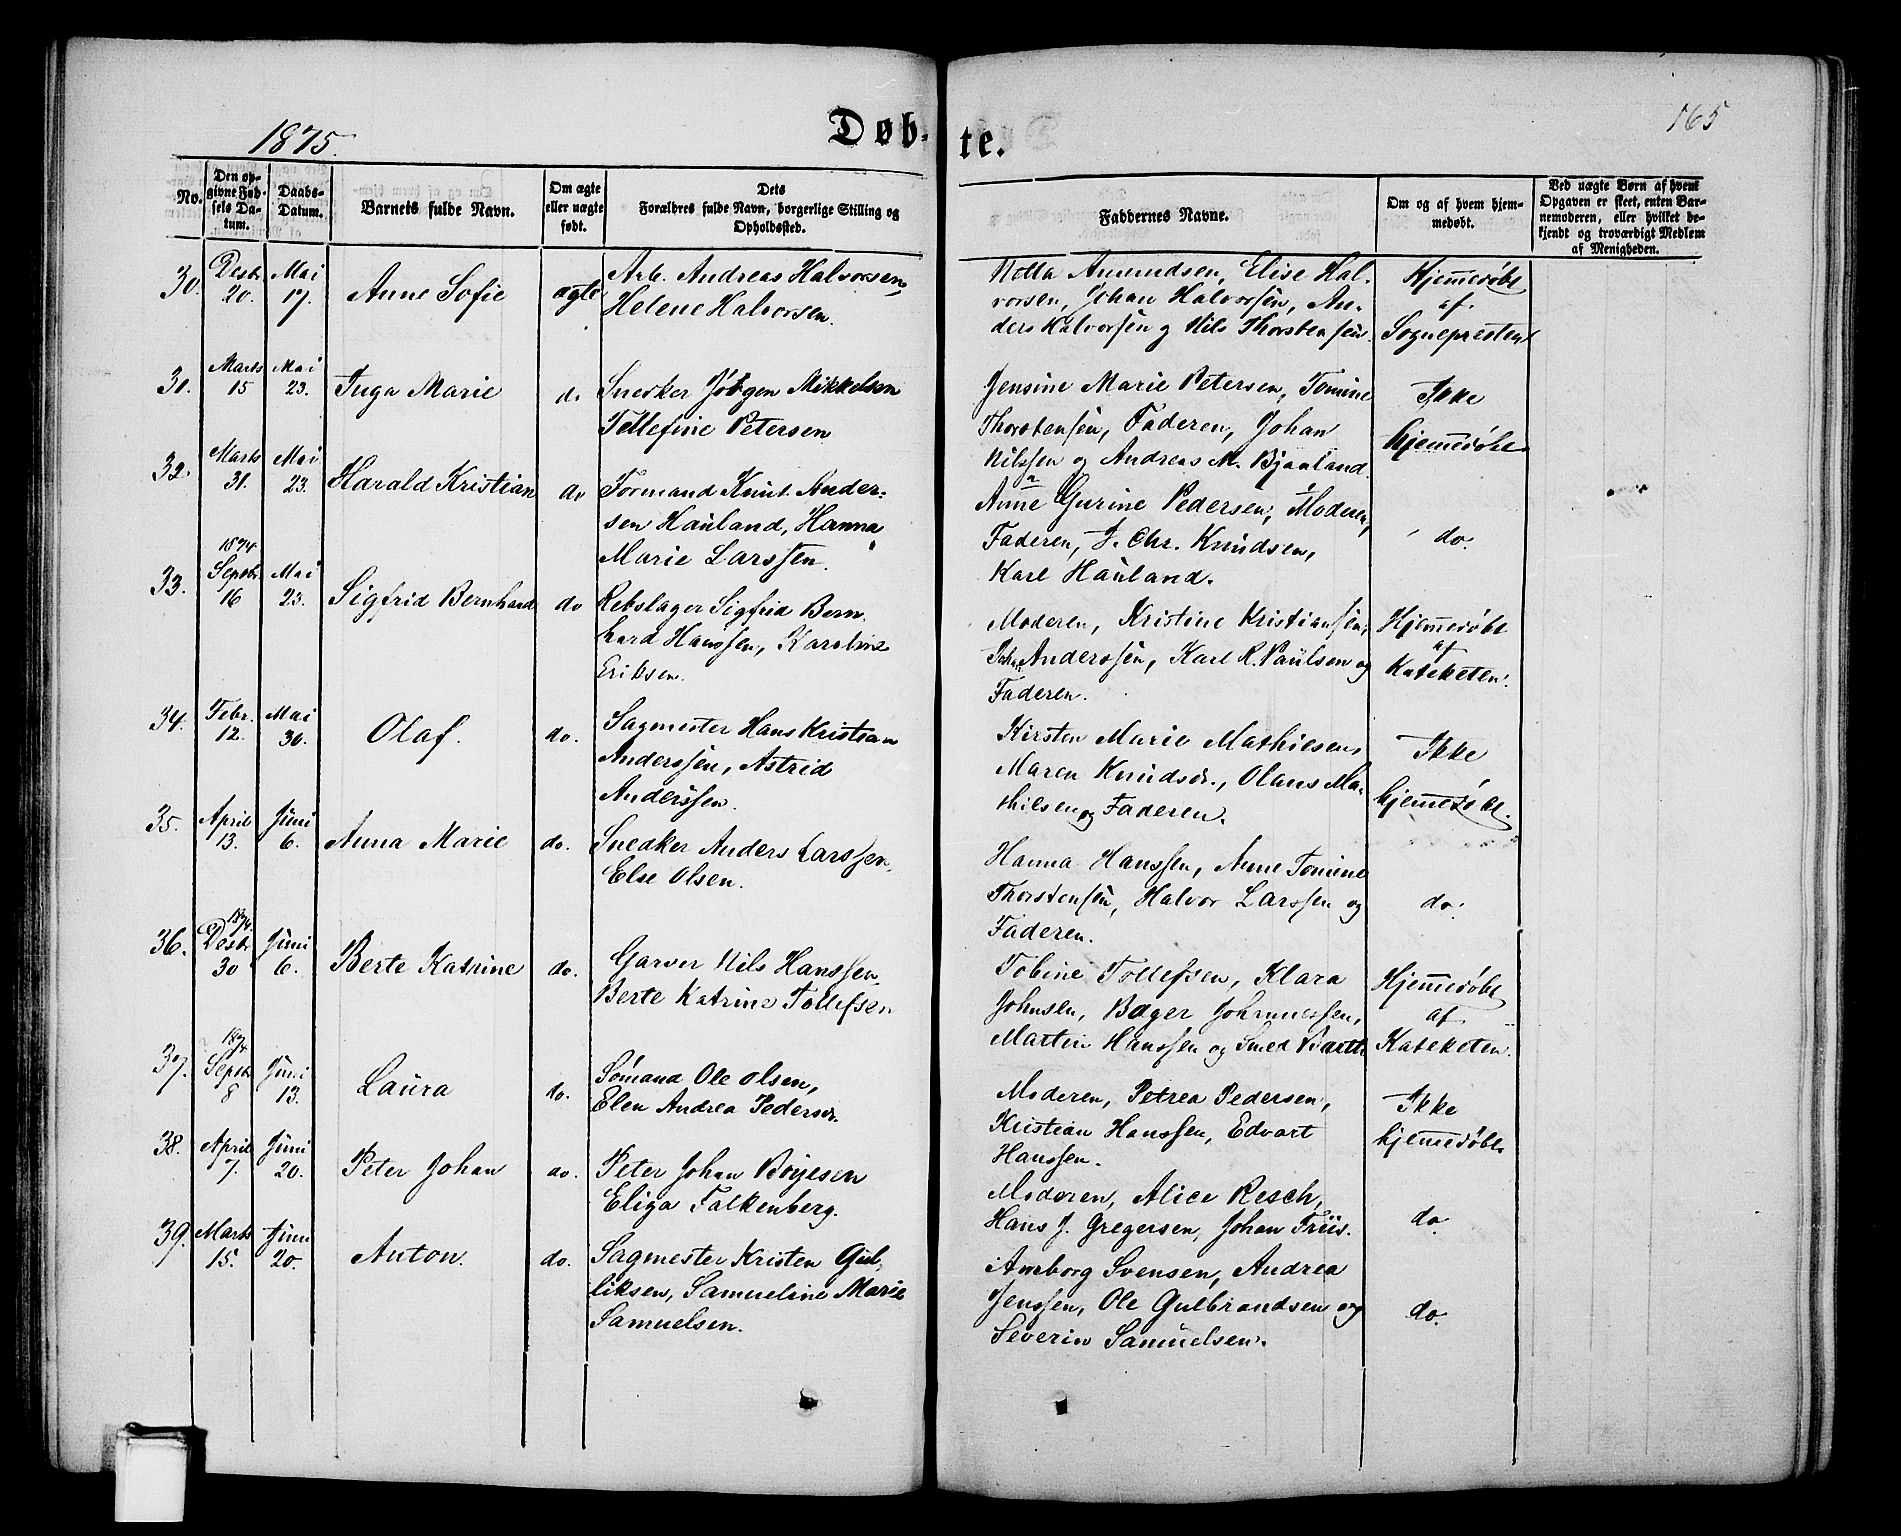 1875.
Døb-te.
165
No.
Den op-
givne Fød-
sels Da-
tum.
Daabs-
Datum.
Barnets fulde Navn.
Om ægte
eller uægte
født.
Dets
Forældres fulde Navn, borgerlige Stilling og
Opholdssted.
Faddernes Navne.
Om og af hvem hjem-
medøbt.
Ved uægte Børn af hvem
Opgaven er skeet, enten Bar-
nemoderen, eller hvilket be-
kjendt og troværdigt Medlem
af Menigheden.
30.
Desbr.
20.
Mai
17.
Anne Sofie
ægte
Arb. Andreas Halvorsen,
Helene Halvorsen.
Netta Amundsen, Elise Hal-
vorsen, Johan Halvorsen, An-
ders Halvorsen og Nils Thorstensen.
Hjemmedøbt
af
Sognepresten
31.
Marts
15
Mai
23.
Inga Marie
do
Snedker Jørgen Mikkelsen
Tellefine Petersen
Jensine Marie Petersen, Tomine
Thorstensen, Faderen, Johan
Nilssen og Andreas M. Bjaaland.
Ikke
hjemmedøbt
32.
Marts
31.
Mai
23.
Harald Kristian
do
Formand Knut Ander-
sen Hauland, Hanna
Marie Larssen.
Anne Gurine Pedersen, Moderen,
Faderen, J. Chr. Knudsen,
Karl Hauland.
do.
33.
1874
Septbr.
16
Mai
23.
Sigfrid Bernhard
do
Rebslager Sigfrid Bern-
hard Hanssen, Karoline
Eriksen.
Moderen, Kristine Kristiansen,
Joh. Anderssen, Karl R. Paulsen og
Faderen.
Hjemmedøbt
af
Kateketen.
34.
Febr.
12.
Mai
30.
Olaf.
do.
Sagmester Hans Kristian
Anderssen, Astrid
Anderssen.
Kirsten Marie Mathiesen,
Maren Knudsdr., Olaus Ma-
thiesen og Faderen.
Ikke
hjemmedøbt.
35.
April
13.
Juni
6.
Anna Marie
do.
Snedker Anders Larssen,
Else Olsen.
Hanna Hanssen, Anne Tomine
Thorstensen, Halvor Larssen og
Faderen.
do.
36.
1874.
Desbr
30
Juni
6.
Berte Katrine
do.
Garver Nils Hanssen,
Berte Katrine Tollefsen
Tobine Tollefsen, Klara
Johnsen, Bager Johannessen,
Martin Hanssen og Smed Barth
Hjemmedøbt
af
Kateketen.
37.
1874
Septbr
8
Juni
13.
Laura
do.
Sømand Ole Olsen,
Elen Andrea Pedersdr.
Moderen, Petrea Pedersen,
Kristian Hanssen, Edvart
Hanssen.
Ikke
hjemmedøbt.
38.
April
7.
Juni
20.
Peter Johan
do.
Peter Johan Bøyesen
Eliza Falkenberg.
Moderen, Alice Resch,
Hans J. Gregersen, Johan Friis.
do
39.
Marts
15.
Juni
20.
Anton.
do.
Sagmester Kristen Gul-
liksen, Samueline Marie
Samuelsen.
Amborg Svensen, Andrea
Jenssen, Ole Gulbrandsen og
Severin Samuelsen.
do.